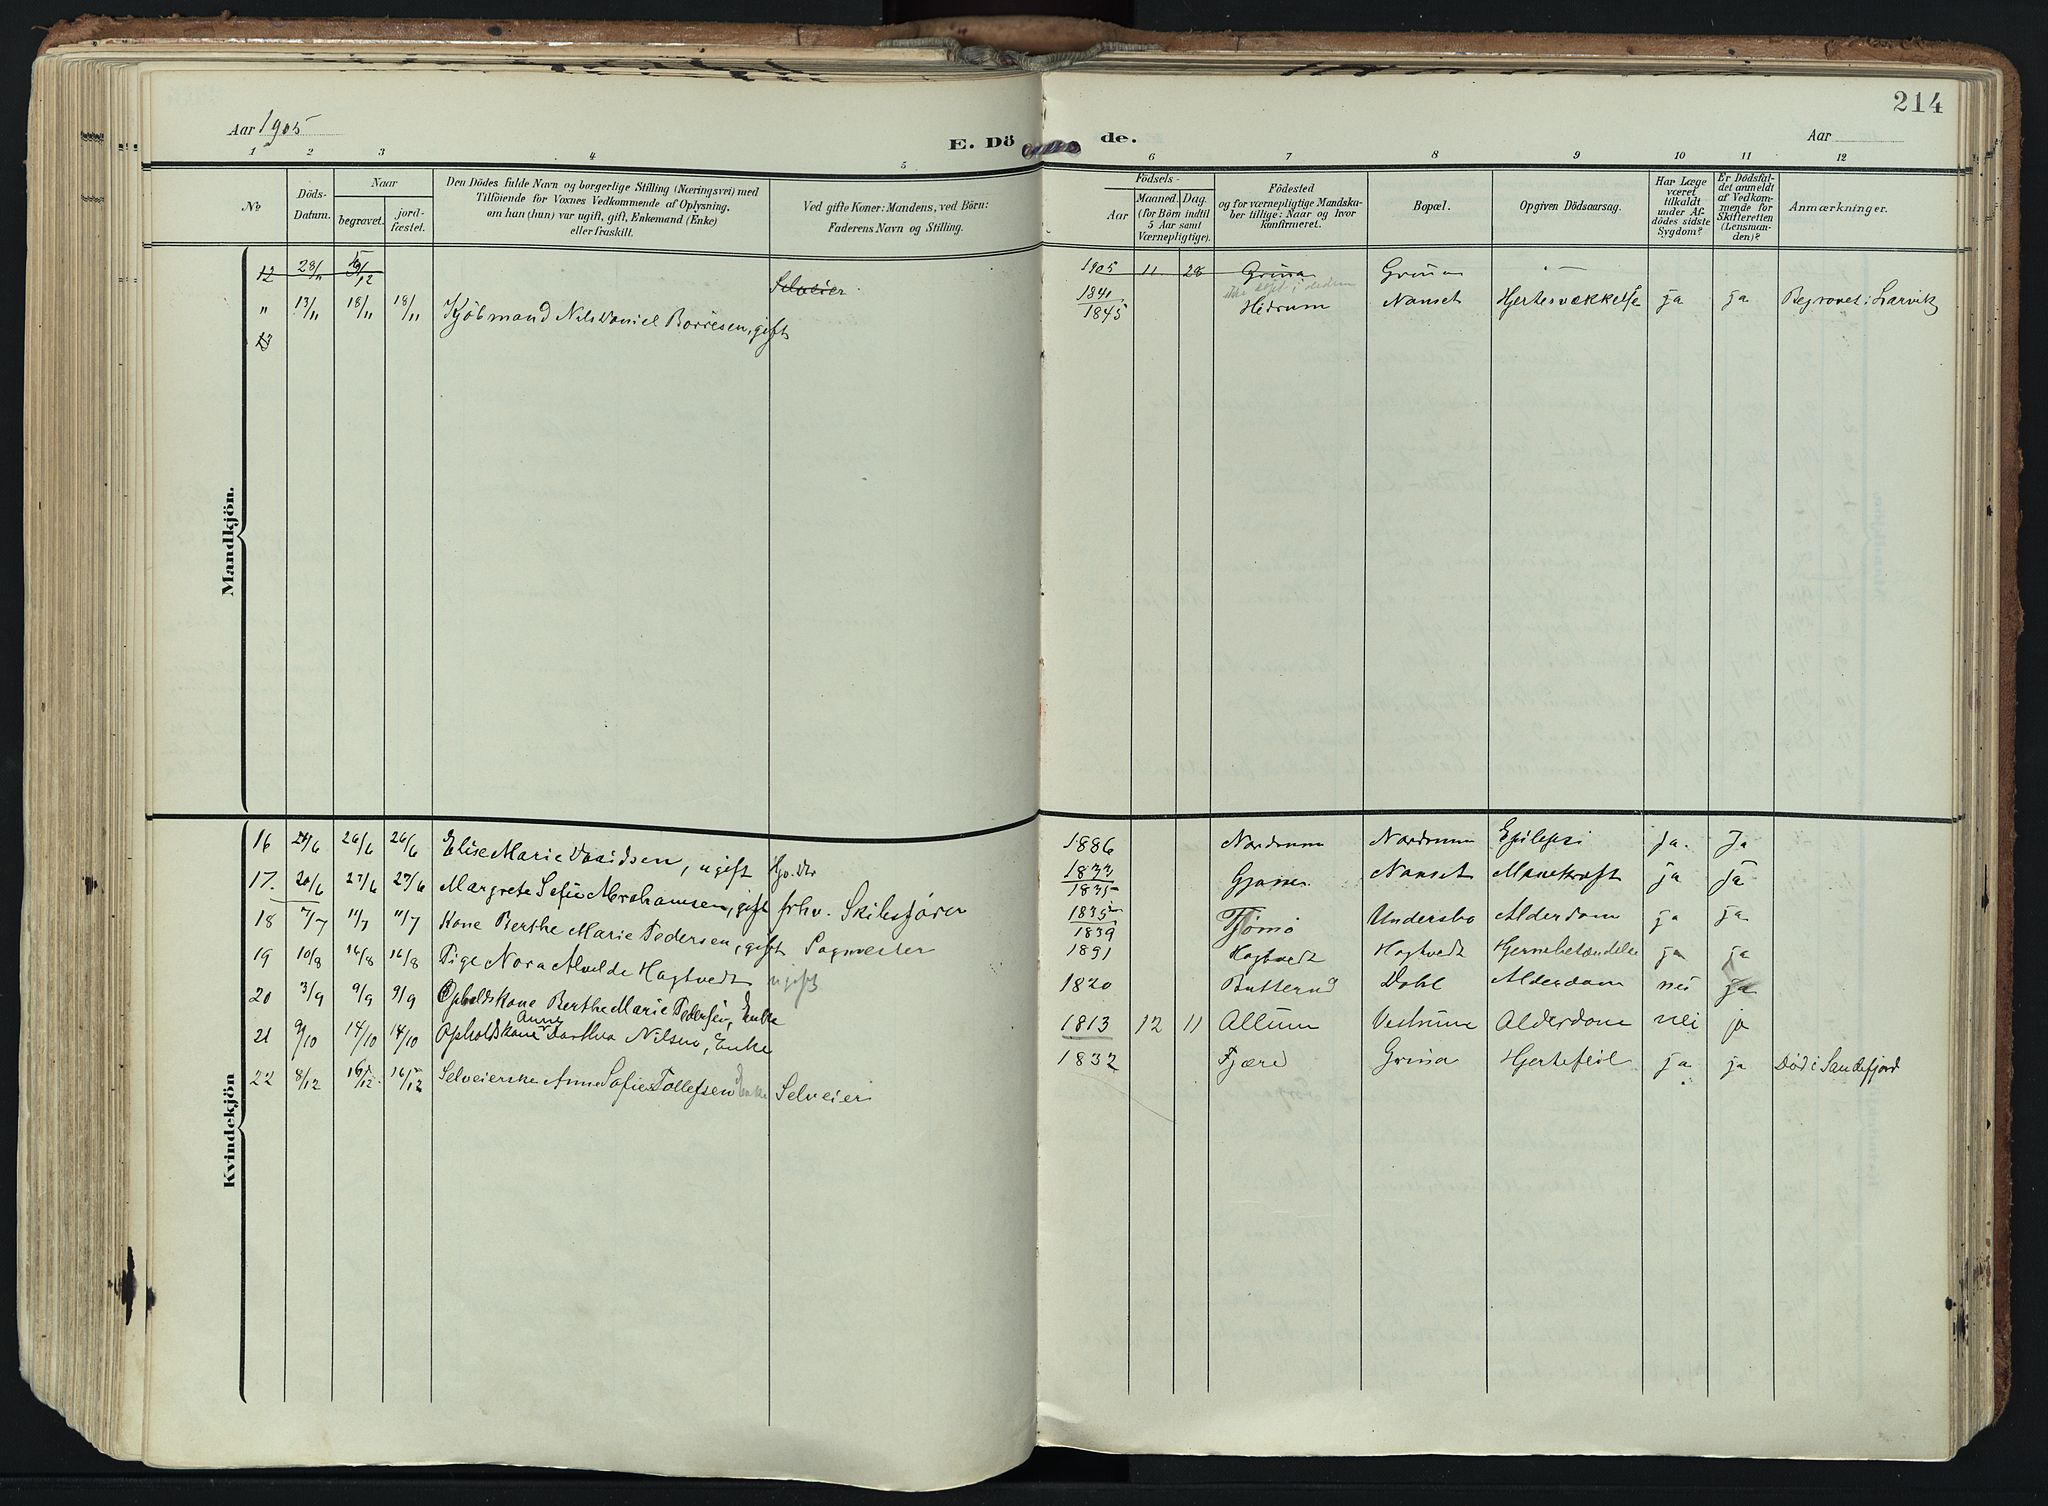 214
Aar 1905
E. Dö de.
Aar
1 2 3 4 5 6 7 8 9 10 11 12
No
Döds-Datum.
Naar
begravet.
jord-fæstet.
Den Dödes fulde Navn og borgerlige Stilling (Næringsvei) med
Tilföiende for Voxnes Vedkommende af Oplysning,
om han (hun) var ugift, gift, Enkemand (Enke)
eller fraskilt.
Ved gifte Koner: Mandens, ved Börn:
Faderens Navn og Stilling.
Födsels-
Aar
Maaned. Dag.
(for Börn indtil
5 Aar samt
Værnepligtige).
Födested
og for værnepligtige Mandska-
ber tillige: Naar og hvor
konfirmeret.
Bopæl.
Opgiven Dödsaarsag.
Har Læge
været
tilkaldt
under Af-
dödes sidste
Sygdom?
Er Dödsfal-
det anmeldt
af Vedkom-
mende for
Skifteretten
(Lensman-
den)?
Anmærkninger.
Mandkjön.
12 28/11 /12 Selveier 1905 11 28 Grina Grina —
" 13/11 18/11 18/11 Kjöbmand Nils Daniel Borresen, gift 1841/1845 Hidrum Nanset Hjertesvækkelse ja ja Begravet i Larvik
13
Kvindekjön
16 24/6 26/6 26/6 Elise Marie Davidsen, ugift 1886 Nordrum Nordrum Epilepsi Ja. Ja
17. 20/6 27/6 27/6 Margrete Sofie Abrahamsen, gift frhv. Skibsfører 1833/1835 Nanset Mavekræft ja ja
18 7/7 11/7 11/7 Kone Berthe Marie Pedersen, gift 1835/1839 Tjömö Undersbo Alderdom ja ja
19 10/8 16/8 16/8 Pige Nora Alvilde Hagtvedt ugift 1891 Hagtvedt Hagtvedt Hjernebetændelse ja ja
20 3/9 9/9 9/9 Opholdskone Berthe Marie Pedersen, Enke 1820 Butterud Dahl Alderdom nei ja
21 9/10 14/10 14/10 Opholdskone Anne Dorthea Nilsen, Enke 1813 12 11 Allum Vestrum Alderdom nei ja
22 8/12 16/12 16/12 Selveierske Anne Sofie Tollefsen Enke Selveier 1832 Fjære Grina Hjertefeil ja ja Död i Sandefjord